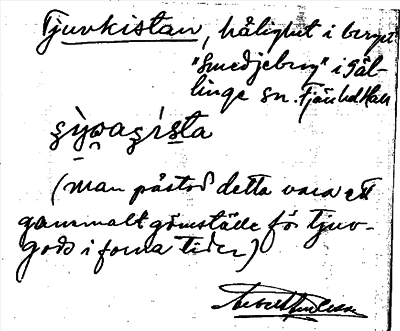 Tjuvkistan, hålighet i berget
"Smedjeberg" i Gäl-
linge sn. Fjäre hd Hall
(man påstod detta vara ett
gammalt gömställe för tjuv-
gods i forna tider)